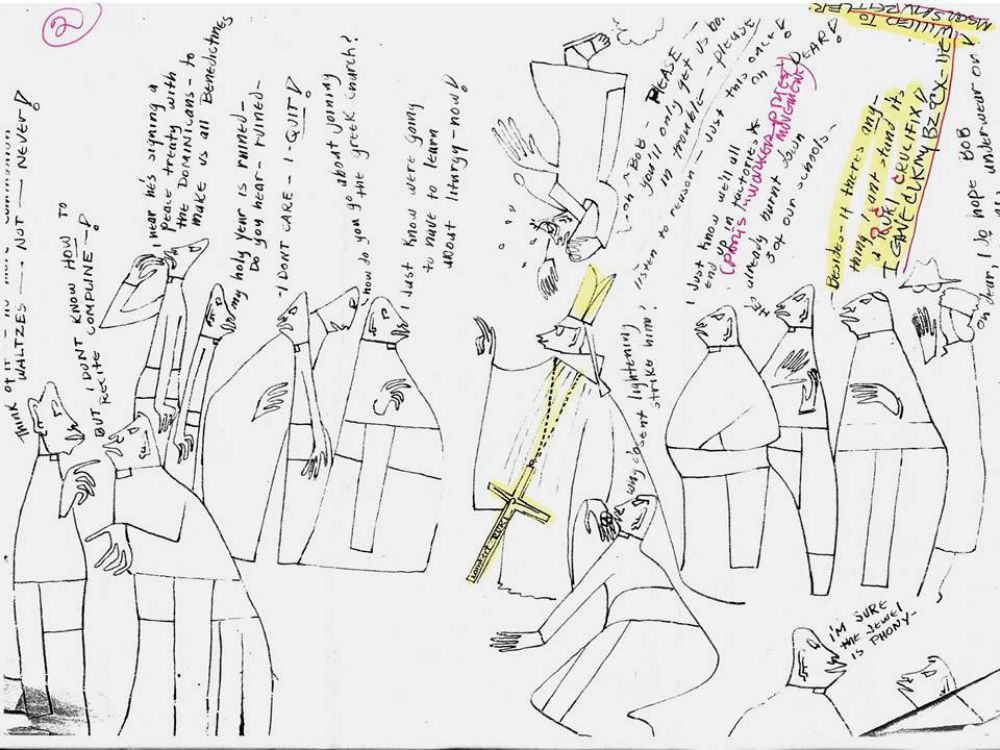 2
Think of it — no more communion
WALTZES —— NOT —— NEVER!
I DONT KNOW HOW TO
BUT RECITE COMPLINE—!
I hear he's signing a
peace treaty with
the DOMINICANS - to
make us all Benedictines
my holy year is ruined—
Do you hear - ruined—
I DONT CARE - I - QUIT!
how do you go about joining
the greek church?
I Just know were going
to have to learn
about liturgy - now!
ooh - BOB - PLEASE —
you'll only get us bo
in trouble -
listen to reason - just this once!
please
why doesent lightening
strike him!
I Just know we'll all
end up in factories*
(PARIS "WORKER PRIEST
MOVEMENT
on DEAR!
HE'S already burnt down
3 of our schools -
Besides - if theres any-
thing I cant stand its
a RUKI CRUCIFIX!
I GAVE
TO
oh dear, I do hope BOB
underwear on!
RUKI
I'M SURE
the Jewel
IS PHONY-